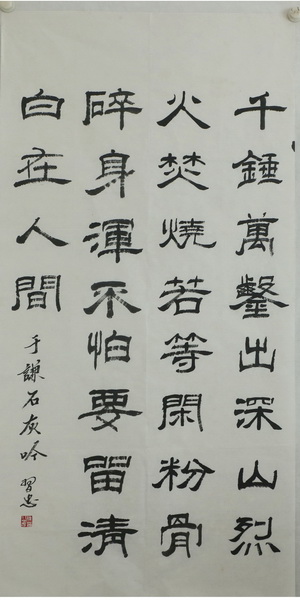 千錘萬鑿出深山烈
火焚燒若等閑粉骨
碎身渾不怕要留清
白在人間
于謙石灰吟 習忠